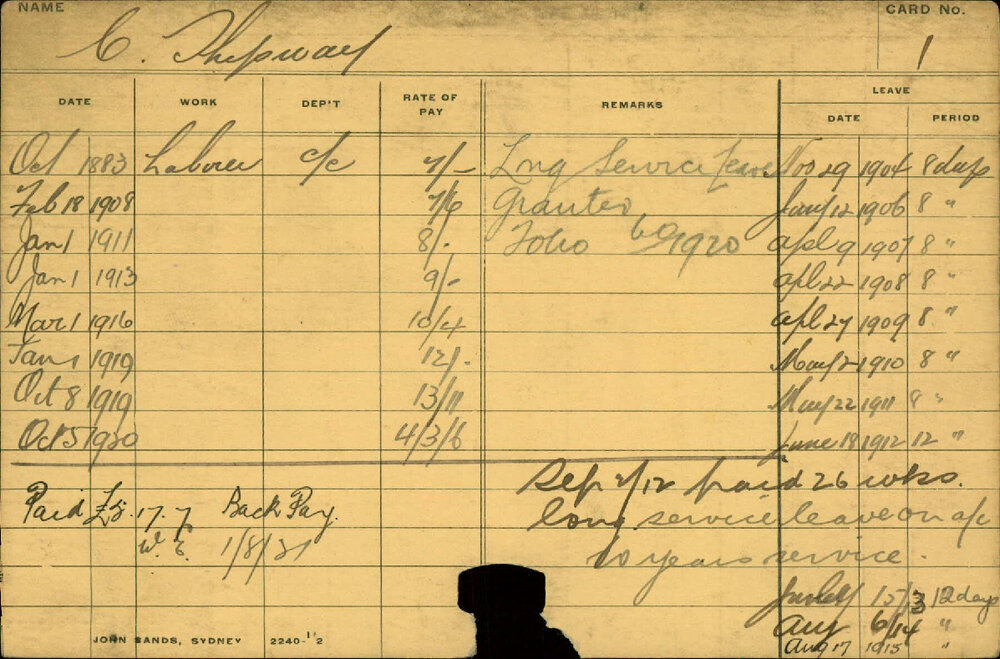 NAME
C. Shepway
CARD No.
1
DATE WORK DEP'T RATE OF PAY REMARKS LEAVE
DATE PERIOD
Oct 1883 Laborer c/c 7/- Long Service leave Nov 29 1904 8 days
Feb 18 1908 7/6 Granted Jany 12 1906 8 "
Jan 1 1911 8/- Folio 60/1920 Apl 9 1907 8 "
Jan 1 1913 9/- apl 22 1908 8 "
Mar 1 1916 10/4 apl 27 1909 8 "
Jan 1 1919 12/- May 2 1910 8 "
Oct 8 1919 13/11 May 22 1911 8 "
Oct 5 1920 4/3/6 June 18 1912 12 "
Sep 2/12 paid 26 wks.
Paid £3. 17. 7 Back Pay. long service leave on a/c
W. E. 1/8/21 10 years service.
12 days
Aug 6/14 "
Aug 17 1915 "
JOHN SANDS, SYDNEY 2240-1'2